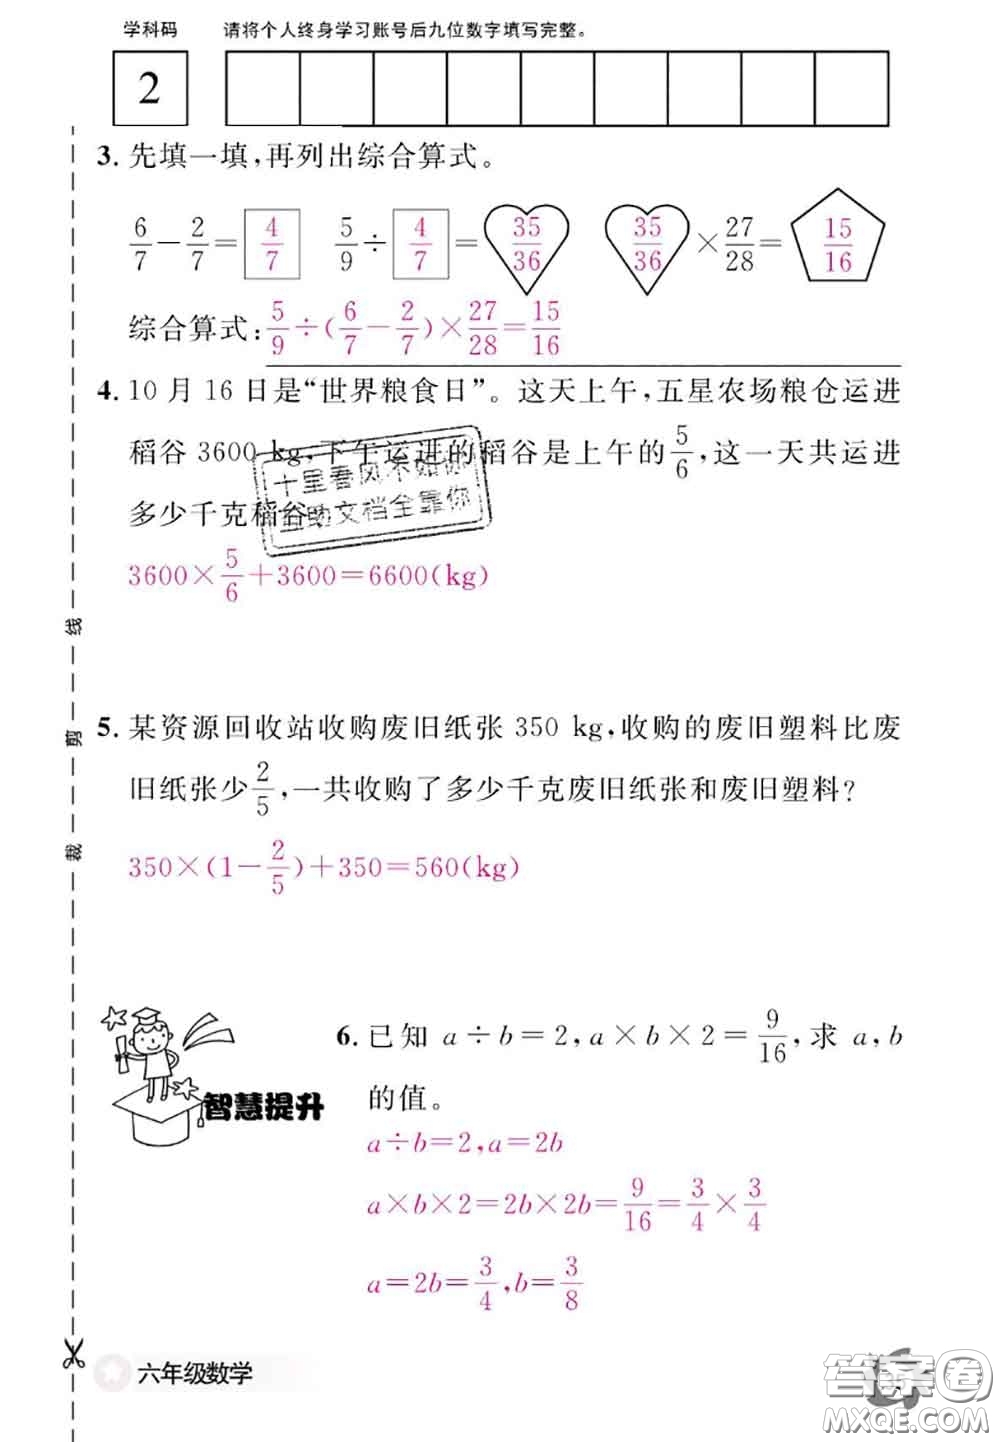 学科码 请将个人终身学习账号后九位数字填写完整。
2
3. 先填一填,再列出综合算式。
6/7 − 2/7 = 4/7 5/9 ÷ 4/7 = 35/36 35/36 × 27/28 = 15/16
综合算式: 5/9 ÷ (6/7 − 2/7) × 27/28 = 15/16
4. 10 月 16 日是“世界粮食日”。这天上午,五星农场粮仓运进
稻谷 3600 kg,下午运进的稻谷是上午的 5/6,这一天共运进
多少千克稻谷
十里春风不如你
互助文档全靠你
3600 × 5/6 + 3600 = 6600(kg)
5. 某资源回收站收购废旧纸张 350 kg,收购的废旧塑料比废
旧纸张少 2/5,一共收购了多少千克废旧纸张和废旧塑料?
350 × (1 − 2/5) + 350 = 560(kg)
智慧提升
6. 已知 a ÷ b = 2, a × b × 2 = 9/16, 求 a, b
的值。
a ÷ b = 2, a = 2b
a × b × 2 = 2b × 2b = 9/16 = 3/4 × 3/4
a = 2b = 3/4, b = 3/8
线
剪
裁
六年级数学
答案卷
MXQE.COM